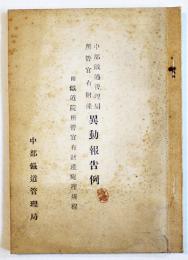 中部鐵道管理局
所管官有財產
異動報告例
附鐵道院所管官有財產處理規程
中部鐵道管理局